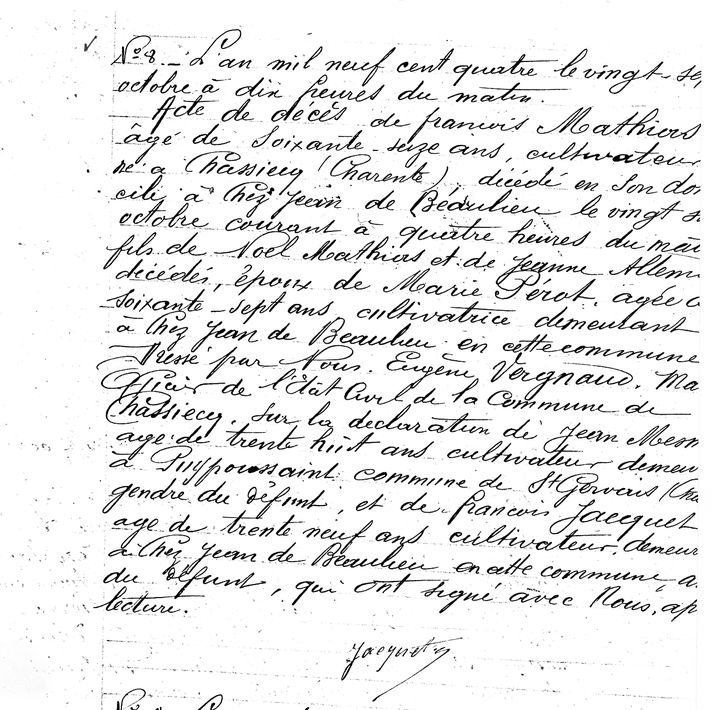 Nº 8 _ L'an mil neuf cent quatre le vingt-se
octobre à dix heures du matin.
Acte de décès de francois Mathias
âgé de Soixante-seize ans, cultivateur
né a Chassiecq (Charente), décédé en Son do
cile à Chez Jean de Beaulieu le vingt s
octobre courant à quatre heures du mat
fils de Noël Mathias et de Jeanne Allem
décédés, époux de Marie Pérot. agée d
soixante-sept ans cultivatrice demeurant
à Chez Jean de Beaulieu en cette commune
Dressé par Nous. Eugène Vergnaud. Ma
Officier de l'Etat Civil de la Commune de
Chassiecq. Sur la declaration de Jean Mesn
age de trente huit ans cultivateur demeur
à Puypoussaint commune de St Gervais (Cha
gendre du défunt, et de francois Jacquet
age de trente neuf ans cultivateur, demeur
à Chez Jean de Beaulieu en cette commune, a
du défunt, qui ont signé avec Nous, ap
lecture.
Jacquet